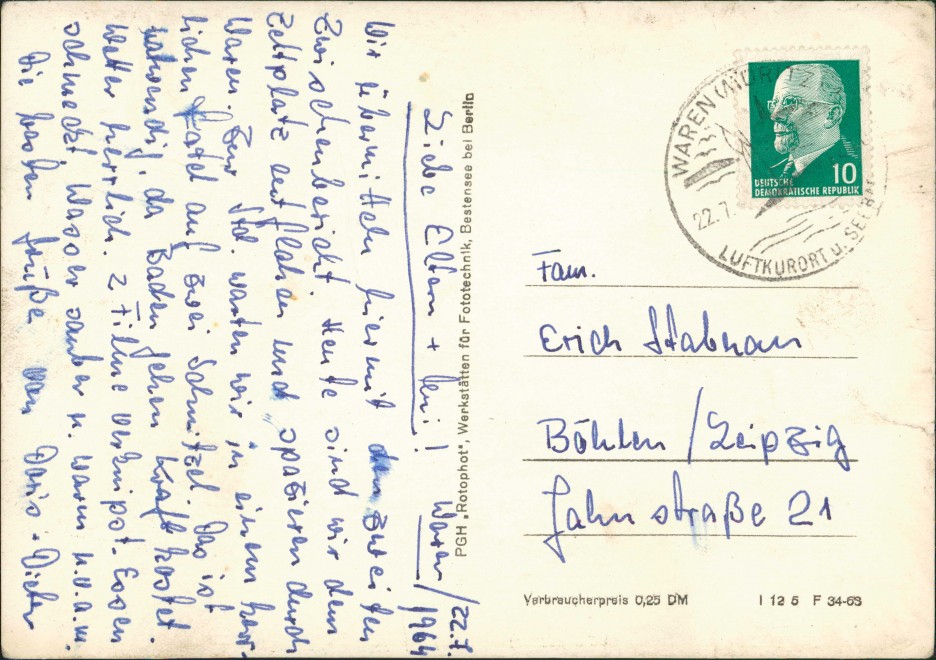 Waren/22.7.
1964
Liebe Eltern + Leni!
Wir übermitteln hiermit den zweiten
Zwischenbericht. Heute sind wir dem
Zeltplatz entflohen und spazieren durch
Waren. Zur Std. warten wir in einem herr-
lichen Hotel auf zwei Schnitzel. Das ist
notwendig, da Baden gehen Kraft kostet.
Wetter herrlich. 2 Filme verknipst. Essen
schmeckt. Wasser sauber u. warm u.s.w.
Die besten Grüße von Doris + Dieter
PGH „Rotophot“, Werkstätten für Fototechnik, Bestensee bei Berlin
WAREN (MÜRITZ)
22.7.
LUFTKURORT u. SEEBAD
10
DEUTSCHE
DEMOKRATISCHE REPUBLIK
Fam.
Erich Stabnau
Böhlen/Leipzig
Jahnstraße 21
Verbraucherpreis 0,25 DM
I 12 5 F 34-63